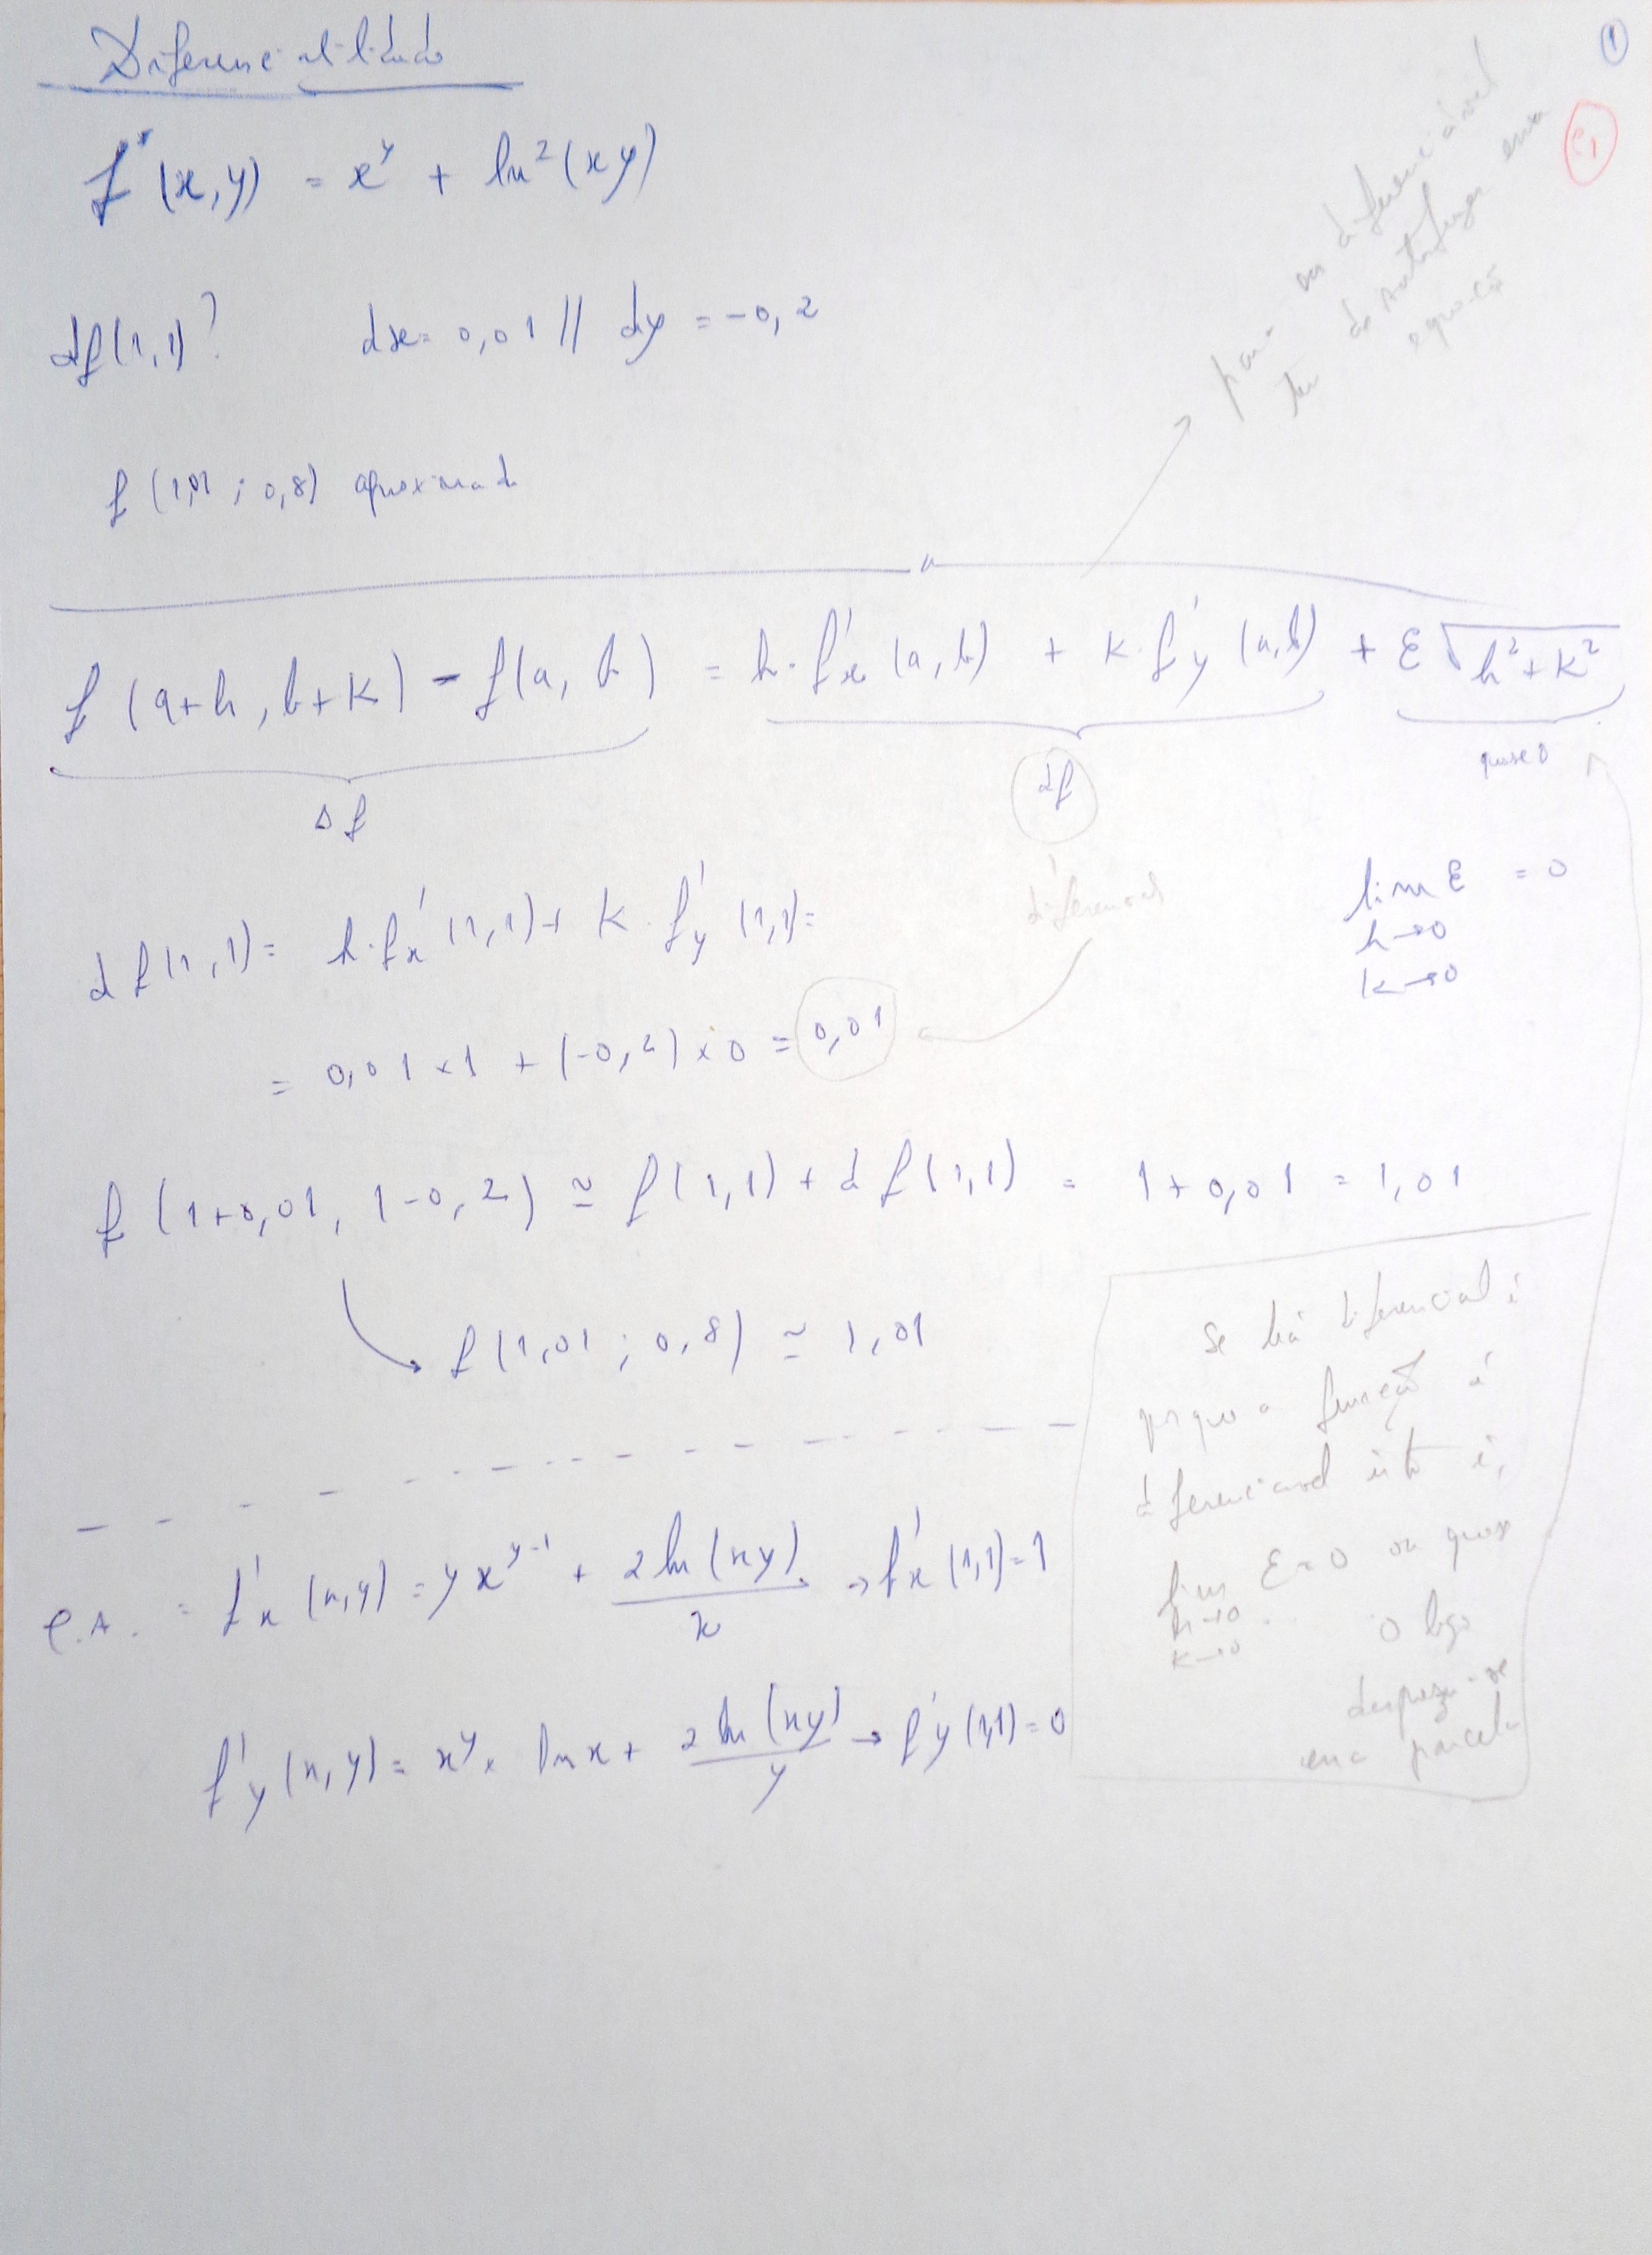 ①
e1
Diferenciabilidade
f(x,y) = x^y + ln²(xy)
df(1,1)? dx = 0,01 // dy = -0,2
f(1,01 ; 0,8) aproximado
para ser diferenciável
tem de satisfazer essa
equação
f(a+h, b+k) - f(a, b) = h · f'x (a,b) + k · f'y (a,b) + ε √(h²+k²)
Δf
df
quase 0
diferencial
lim ε = 0
h→0
k→0
df(1,1) = h·f'x (1,1) + k · f'y (1,1) =
= 0,01 × 1 + (-0,2) × 0 = 0,01
f(1+0,01, 1-0,2) ≃ f(1,1) + df(1,1) = 1 + 0,01 = 1,01
→ f(1,01 ; 0,8) ≃ 1,01
Se há diferencial é
porque a função é
diferenciável isto é,
lim ε = 0 ou quase
h→0
k→0
0 logo
despreza-se
essa parcela
c.a. = f'x (x,y) = y x^(y-1) + 2 ln(xy)/x → f'x (1,1) = 1
f'y (x,y) = x^y × ln x + 2 ln(xy)/y → f'y (1,1) = 0